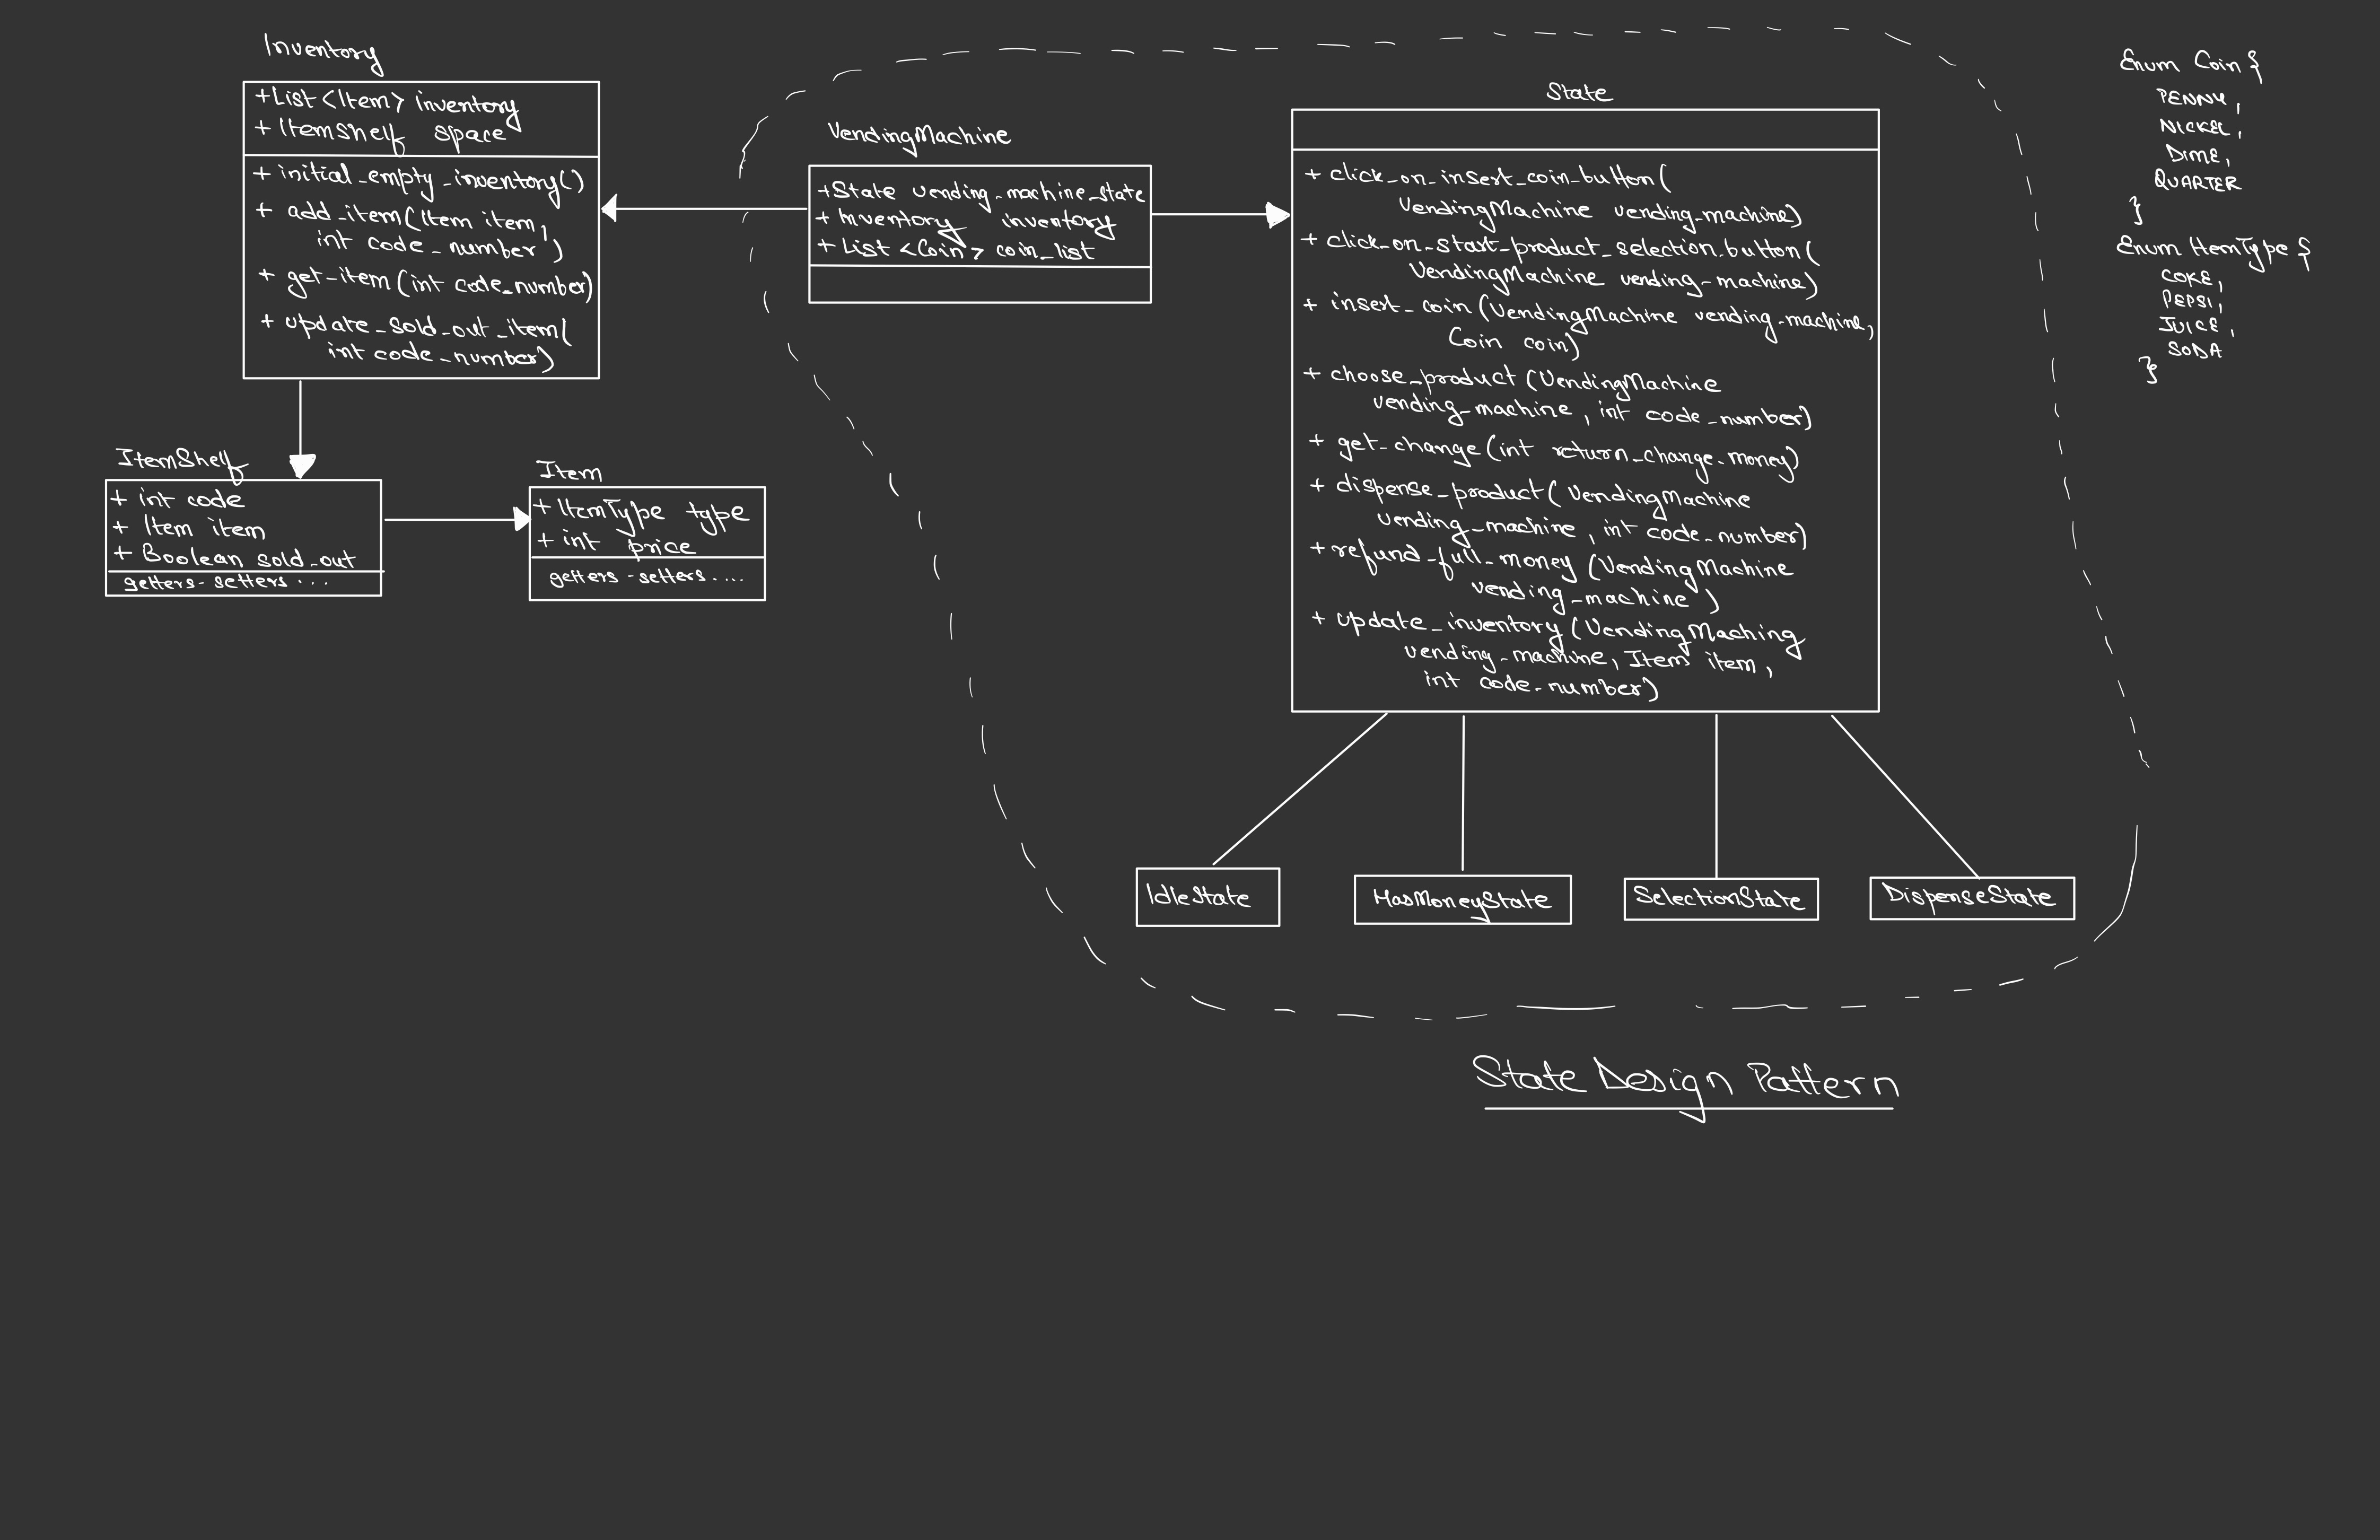 Inventory
+List <Item> inventory
+ ItemShelf space
+ initial_empty_inventory()
+ add_item(Item item,
int code_number)
+ get_item(int code_number)
+ update_sold_out_item(
int code_number)
ItemShelf
+ int code
+ Item item
+ Boolean sold_out
getters-setters...
Item
+ ItemType type
+ int price
getters-setters....
VendingMachine
+State vending_machine_state
+ Inventory inventory
+ List <Coin> coin_list
State
+ click_on_insert_coin_button(
VendingMachine vending_machine)
+ click_on_start_product_selection_button(
VendingMachine vending_machine)
+ insert_coin(VendingMachine vending_machine,
Coin coin)
+ choose_product(VendingMachine
vending_machine, int code_number)
+ get_change(int return_change_money)
+ dispense_product(VendingMachine
vending_machine, int code_number)
+ refund_full_money(VendingMachine
vending_machine)
+ update_inventory(VendingMaching
vending_machine, Item item,
int code_number)
IdleState
HasMoneyState
SelectionState
DispenseState
State Design Pattern
Enum Coin {
PENNY,
NICKEL,
DIME,
QUARTER
}
Enum ItemType {
COKE,
PEPSI,
JUICE,
SODA
}